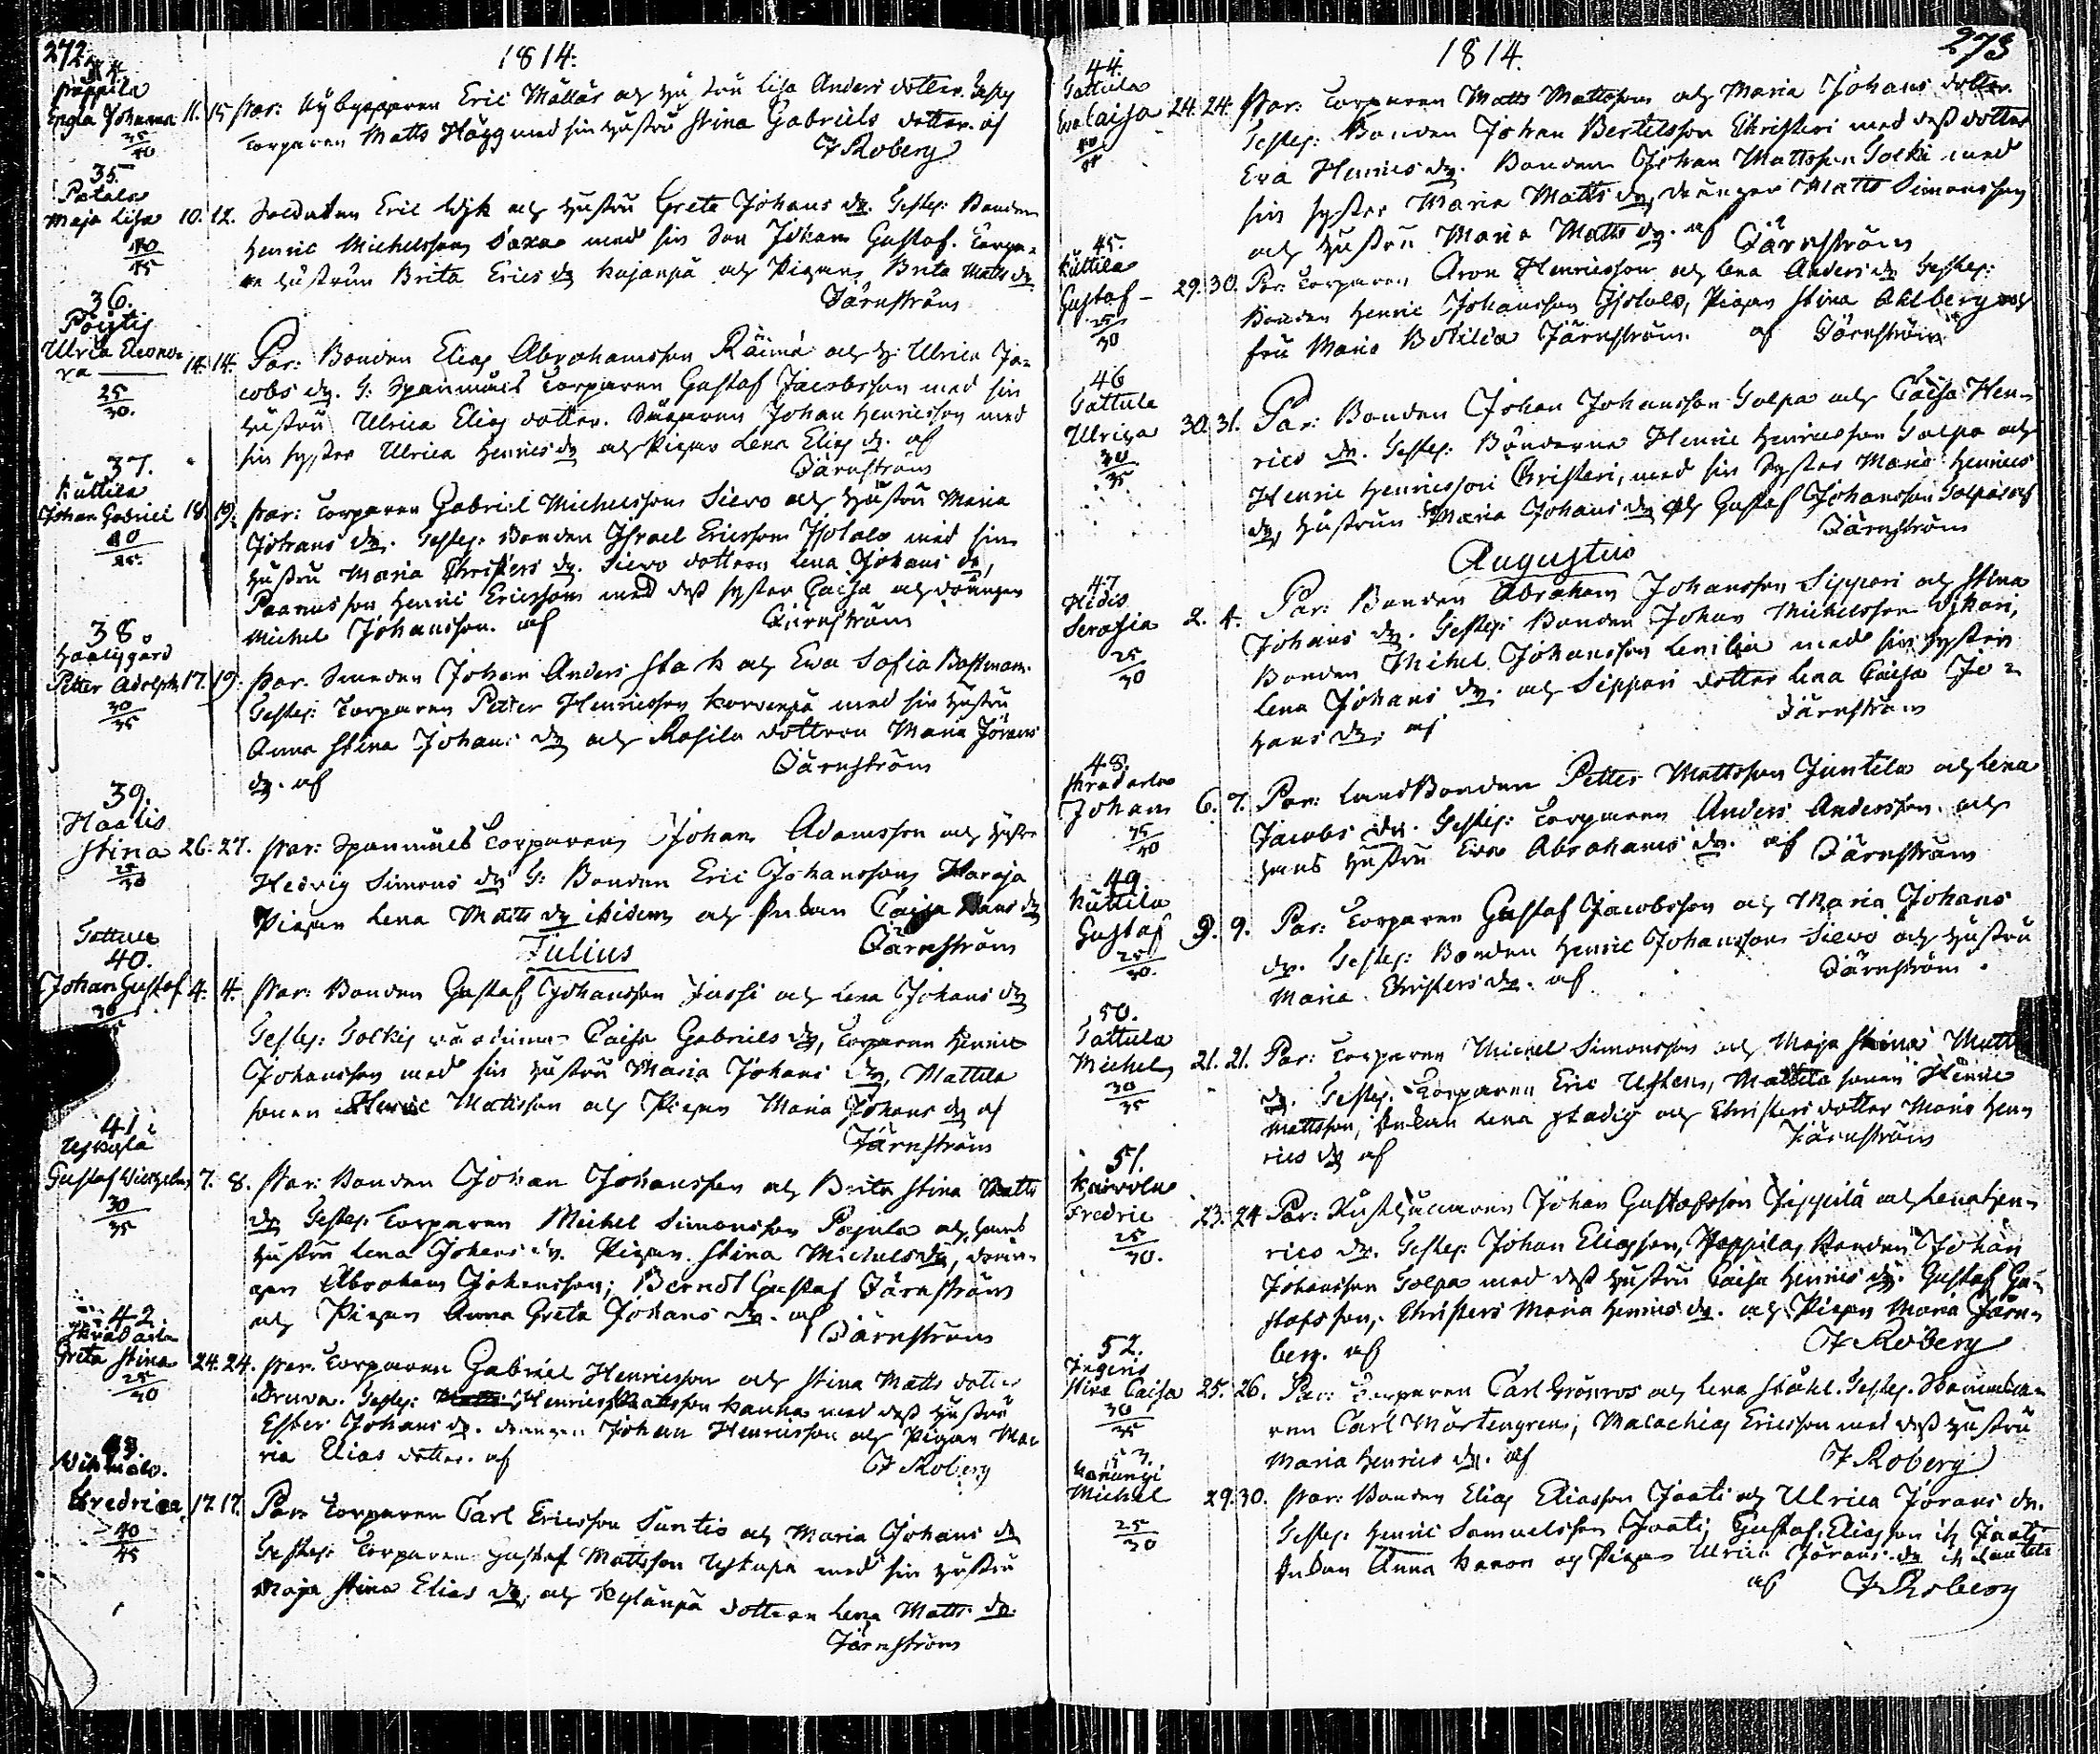 272.
1814.
34.
Prappila
Engla Johanna 11. 15 Par: Nybyggaren Eric Mällär och hustru Lisa Anders dotter. Testes
25/30
Torparen Matts Hägg med sin hustru Stina Gabriels dotter. af
J Roberg
35.
Potala
Maja Lisa 10. 12. Soldaten Eric Wik och hustru Greta Johans dr. Testes: Bonden
40/45
Henric Michelsson Saxa med sin Son Johan Gustaf. Torpa-
re hustrun Brita Erics dr Kajanpä och Pigan Brita Matts dr.
Järnström
36.
Pöytis
Ulrica Eleono-
ra 14. 14. Par: Bonden Elias Abrahamsson Räimä och h: Ulrica Ja-
25/30.
cobs dr. T: Spanmåls Torparen Gustaf Jacobsson med sin
hustru Ulrica Elias dotter. Johan Henricsson med
sin syster Ulrica Henrics dr och Pigan Lena Elias dr. af
Järnström
37.
Kuttila
Johan Gabriel 18. 19. Par: Torparen Gabriel Michelsson Sievo och hustru Maria
Johans dr. Testes: Bonden Israel Ericsson Isotalo med sin
hustru Maria Christers dr. Sievo dottern Lena Johans dr,
Henric Ericsson med dess syster Caisa och drängen
Michel Johansson. af Järnström
38.
Haalisgård
Petter Adolph 17. 19. Par. Smeden Johan Anders Stark och Eva Sofia Bastman.
30/35
Testes: Torparen Petter Henricsson Korvenpä med sin hustru
Anna Stina Johans dr och Rasila dottren Maria Jörans
dr. af Järnström
39.
Haalis
Stina 26. 27. Par: Spanmåls Torparen Johan Adamsson och hustru
25/30
Hedvig Simons dr T: Bonden Eric Johansson Haroja
Pigan Lena Matts dr ibidem och Enkan Caisa Hans dr
Julius Järnström
Tattula
40.
Johan Gustaf 4. 4. Par: Bonden Gustaf Johansson Jussi och Lena Johans dr
30
Testes: Tolkis Caisa Gabriels dr, Torparen Henric
Johansson med sin hustru Maria Johans dr, Mattila
sonen Henric Mattsson och Pigan Maria Johans dr af
Järnström
41.
Uskola
Gustaf Wilhelm 7. 8. Par: Bonden Johan Johansson och Brita Stina Matts
30/35
dr Testes: Torparen Michel Simonsson Pajula och hans
hustru Lena Johans dr. Pigan Stina Michels dr, drän-
gen Abraham Johansson; Berndt Gustaf Järnström
och Pigan Anna Greta Johans dr. af
Järnström
42.
Skrädarla
Greta Stina 24. 24. Par. Torparen Gabriel Henricsson och Stina Matts dotter
25/30
Druva. Testes: Henric Mattsson Kanna med dess hustru
Ester Johans dr. drengen Johan Henricsson och Pigan Ma-
ria Elias dotter. af J Roberg
43.
Vihmalo.
Fredrica 17. 17. Par: Torparen Carl Ericsson Suntio och Maria Johans dr
40/45
Testes: Torparen Gustaf Mattsson med sin hustru
Maja Stina Elias dr, och Kylänpä dottren Lena Matts dr.
Järnström
273
1814.
44.
Tattula
Eva Caisa 24. 24. Par: Torparen Matts Mattsson och Maria Johans dotter
Testes: Bonden Johan Bertelsson Christeri med dess dotter
Eva Henrics dr. Bonden Johan Mattsson Tolki med
sin syster Maria Matts dr, drängen Matts Simonsson
och hustru Maria Matts dr. af Järnström
45.
Kuttila
Gustaf 29. 30. Par: Torparen Aron Henricsson och Lena Anders dr Testes:
25/30
Bonden Henric Johansson Isotalo, Pigan Stina Ahlberg och
fru Maria Botilia Järnström. af Järnström
46
Tattula
Ulrica 30. 31. Par: Bonden Johan Johansson Tolpa och Caisa Hen-
30/35.
rics dr. Testes: Bönderna Henric Henricsson Tolpa och
Henric Henricsson Christeri, med sin Syster Maria Henrics
dr, hustrun Maria Johans dr och Gustaf Johansson Tolpa af
Järnström
Augustus
47
Heidis
Serafia 2. 4. Par: Bonden Abraham Johansson Sippari och Stina
25/30
Johans dr. Testes: Bonden Johan Michelsson Ojkari,
Bonden Michel Johansson med sin syster
Lena Johans dr. och Sippari dotter Lena Caisa Jo-
hans dr. af Järnström
48.
Skrädarla
Johan 6. 7. Par: Landbonden Petter Mattsson Juntila och Lena
25/30
Jacobs dr. Testes: Torparen Anders Andersson och
hans hustru Eva Abrahams dr. af Järnström
49.
Kuttila
Gustaf 9. 9. Par: Torparen Gustaf Jacobsson och Maria Johans
25/30.
dr. Testes: Bonden Henric Johansson Sievo och hustru
Maria Christers dr. af Järnström.
50.
Tattula
Michel 21. 21. Par: Torparen Michel Simonsson och Maja Stina Matts
30/35
dr. Testes: Torparen Eric Usken, Mattila sonen Henric
Mattsson, Enkan Lena Stadig och Christers dotter Maria Hen-
rics dr af Järnström
51.
Karvola
Fredric 23. 24 Par: Johan Gustafsson Pippilä och Lena Hen-
25/30.
rics dr. Testes: Johan Eliasson, Pappila, Bonden Johan
Johansson Tolpa med dess hustru Caisa Henrics dr. Gustaf Gu-
stafsson, Christers Maria Henrics dr. och Pigan Maria Järn-
berg. af J Roberg
52.
Ingeris
Stina Caisa 25. 26. Par: Torparen Carl Grönroos och Lena Ståhl. Testes.
30/35
ren Carl Mårtengren, Malachias Ericsson med dess hustru
Maria Henrics dr. af J Roberg
53.
Hanungi
Michel 29. 30. Par: Bonden Elias Eliasson Jaati och Ulrica Jörans dr.
25/30
Testes: Henric Samuelsson Jaati, Gustaf Eliasson ib Jaati
Enkan Anna Karon och Pigan Ulrica Jörans dr
af J Roberg